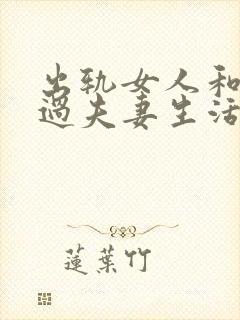 出轨女人和
过夫妻生活
蓮葉竹